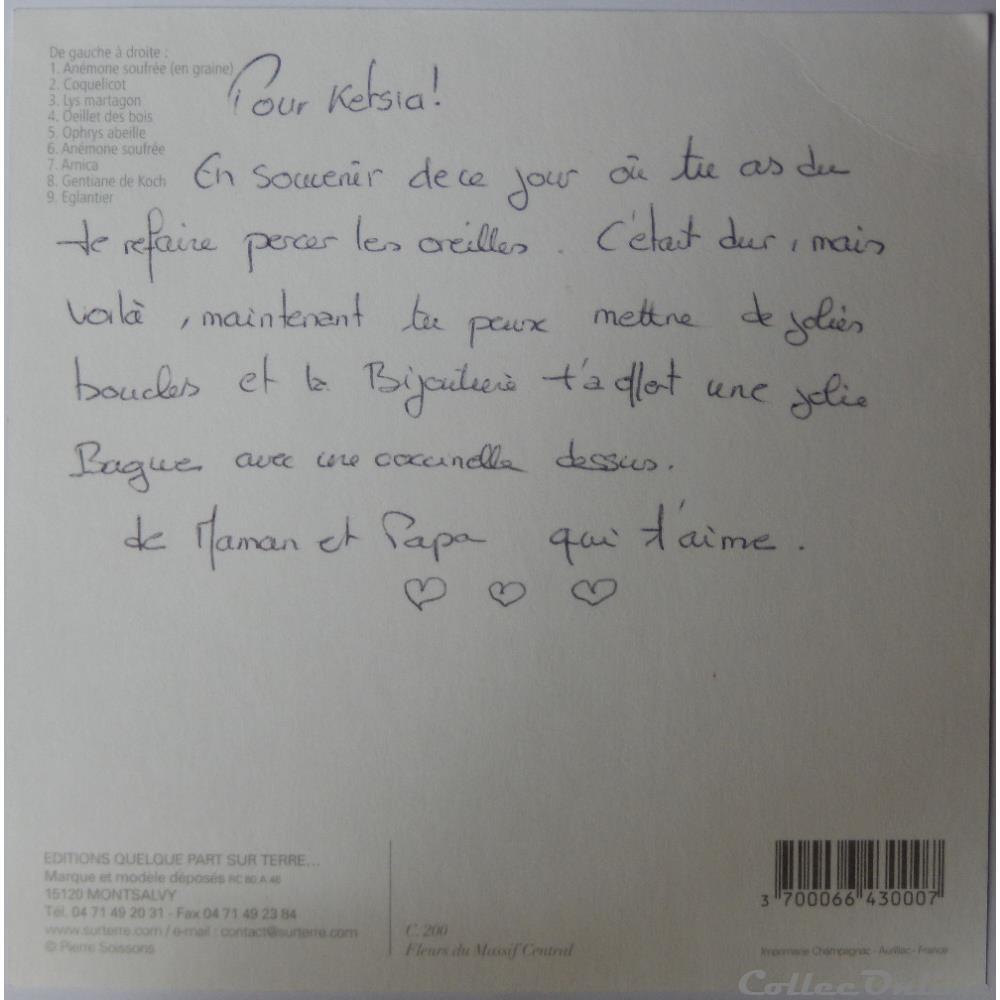 De gauche à droite :
1. Anémone soufrée (en graine)
2. Coquelicot
3. Lys martagon
4. Oeillet des bois
5. Ophrys abeille
6. Anémone soufrée
7. Arnica
8. Gentiane de Koch
9. Eglantier
Pour Ketsia!
En souvenir de ce jour où tu as du
te refaire percer les oreilles. C'était dur, mais
voilà, maintenant tu peux mettre de jolies
boucles et la Bijouterie t'a offert une jolie
Bague avec une coccinelle dessus.
de Maman et Papa qui t'aime.
EDITIONS QUELQUE PART SUR TERRE...
Marque et modèle déposés RC 80 A 46
15120 MONTSALVY
Tél. 04 71 49 20 31 - Fax 04 71 49 23 84
www.surterre.com / e-mail : contact@surterre.com
© Pierre Soissons
C. 200
Fleurs du Massif Central
3 700066 430007
Imprimerie Champagnac - Aurillac - France